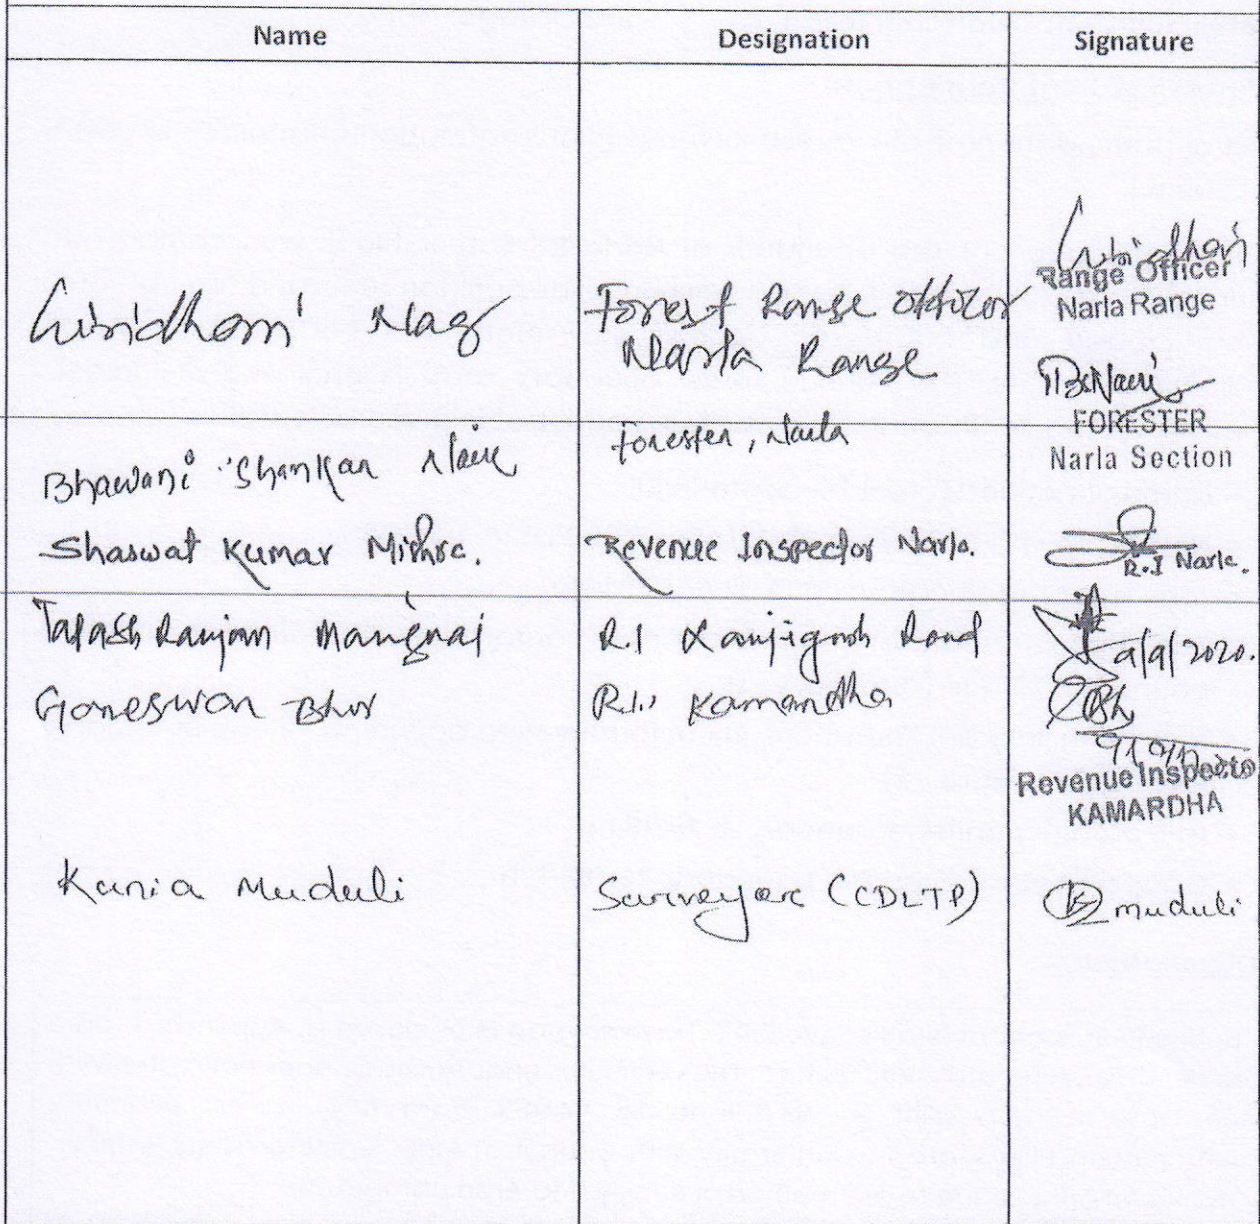 Name Designation Signature
Giridhari Nag Forest Range Officer Giridhari
Narla Range Range Officer
Narla Range
Bhawani Shankar Naik Forester, Narla BSNaik
FORESTER
Narla Section
Shaswat Kumar Mishra. Revenue Inspector Narla.
R.I Narla.
Ranjan R.I Lanjigarh Road 9/9/2020.
Goneswar Bhoi R.I., Kamardha
9/9/2020
Revenue Inspecto
KAMARDHA
Kania Muduli Surveyor (CDLTP) muduli